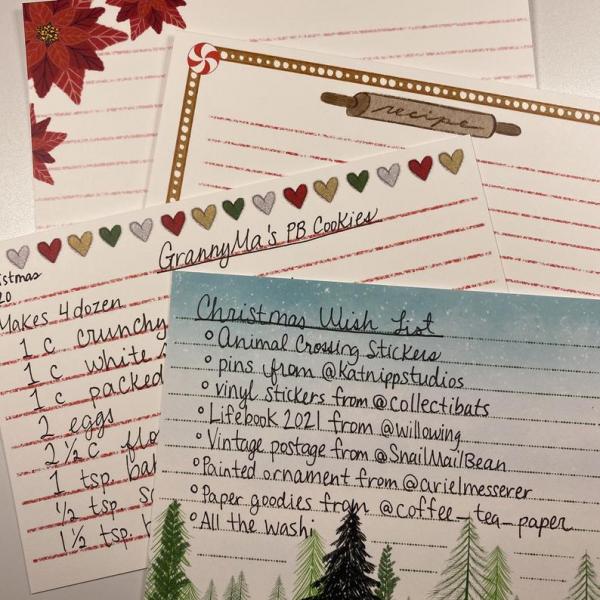 recipe
GrannyMa's PB Cookies
20
Makes 4 dozen
1 c crunchy
1 c white
1 c packed
2 eggs
2 ½ c flo
1 tsp. ba
½ tsp s
1 ½ tsp.
Christmas Wish List
° Animal Crossing Stickers
° pins from @katnippstudios
° vinyl stickers from @collectibats
° Lifebook 2021 from @willowing
° Vintage postage from @SnailMailBean
° Painted ornament from @arielmesserer
° Paper goodies from @coffee_tea_paper
° All the washi